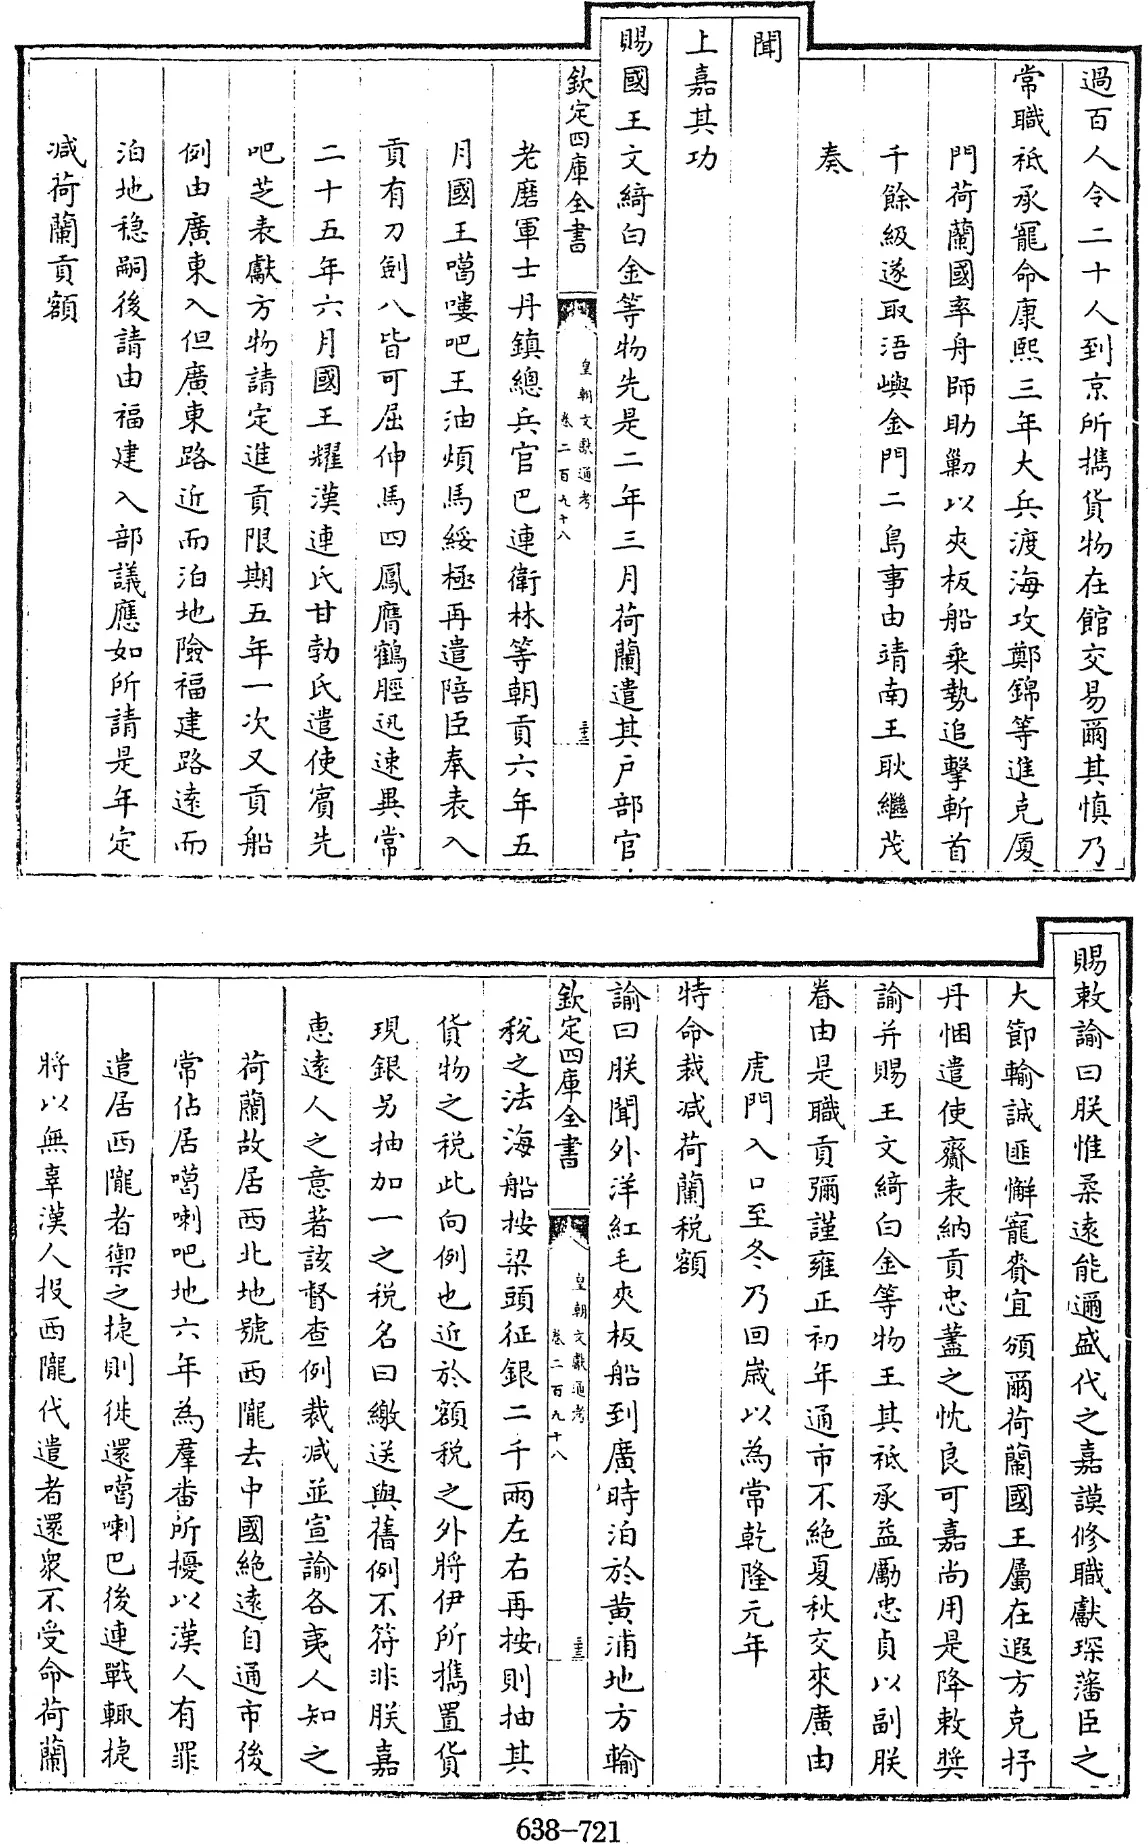 過百人令二十人到京所攜貨物在館交易爾其慎乃
常職祗承寵命康熙三年大兵渡海攻鄭錦等進克厦
門荷蘭國率舟師助勦以夾板船乘勢追擊斬首
千餘級遂取浯嶼金門二島事由靖南王耿繼茂
奏
聞
上嘉其功
賜國王文綺白金等物先是二年三月荷蘭遣其户部官
欽定四庫全書
皇朝文獻通考
卷二百九十八
老磨軍士丹鎮總兵官巴連衛林等朝貢六年五
月國王噶嘍吧王油煩馬綏極再遣陪臣奉表入
貢有刀劍八皆可屈伸馬四鳳膺鶴脛迅速異常
二十五年六月國王耀漢連氏甘勃氏遣使賓先
吧芝表獻方物請定進貢限期五年一次又貢船
例由廣東入但廣東路近而泊地險福建路遠而
泊地穩嗣後請由福建入部議應如所請是年定
減荷蘭貢額
賜敕諭曰朕惟柔遠能邇盛代之嘉謨修職獻琛藩臣之
大節輸誠匪懈寵賚宜頒爾荷蘭國王屬在遐方克抒
丹悃遣使齎表納貢忠藎之忱良可嘉尚用是降敕奬
諭并賜王文綺白金等物王其祗承益勵忠貞以副朕
眷由是職貢彌謹雍正初年通市不絶夏秋交來廣由
虎門入口至冬乃回嵗以為常乾隆元年
特命裁減荷蘭税額
諭曰朕聞外洋紅毛夾板船到廣時泊於黄浦地方輸
欽定四庫全書
皇朝文獻通考
卷二百九十八
税之法海船按梁頭征銀二千兩左右再按則抽其
貨物之税此向例也近於額税之外將伊所攜置貨
現銀另抽加一之税名曰繳送與舊例不符非朕嘉
惠遠人之意著該督查例裁減並宣諭各夷人知之
荷蘭故居西北地號西隴去中國絶遠自通市後
常佔居噶喇吧地六年為羣畨所擾以漢人有罪
遣居西隴者禦之捷則徙還噶喇巴後連戰輒捷
將以無辜漢人投西隴代遣者還衆不受命荷蘭
638-721